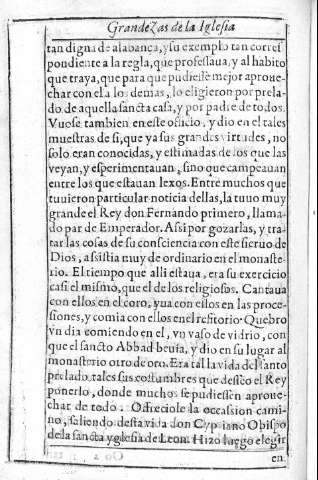 Grandezas de la Iglesia
tan digna de alabança, y su exemplo tan corres
pondiente a la regla, que professaua, y al habito
que traya, que para que pudiesse mejor aproue-
char con el a los demas, lo eligieron por prela-
do de aquella sancta casa, y por padre de todos.
Vuose tambien en este officio, y dio en el tales
muestras de si, que ya sus grandes virtudes, no
solo eran conocidas, y estimadas de los que las
veyan, y esperimentauan, sino que campeauan
entre los que estauan lexos. Entre muchos que
tuuieron particular noticia dellas, la tuuo muy
grande el Rey don Fernando primero, llama-
do par de Emperador. Assi por gozarlas, y tra-
tar las cosas de su consciencia con este sieruo de
Dios, assistia muy de ordinario en el monaste-
rio. El tiempo que alli estaua, era su exercicio
casi el mismo, que el de los religiosos. Cantaua
con ellos en el coro, yua con ellos en las proces-
siones, y comia con ellos en el refitorio. Quebro
vn dia comiendo en el, vn vaso de vidrio, con
que el sancto Abbad beuia, y dio en su lugar al
monasterio otro de oro. Era tal la vida del santo
prelado, tales sus costumbres que desseo el Rey
ponerlo, donde mucho se pudiessen aproue-
char de todo. Offreciole la occassion cami-
no, saliendo desta vida don Cypriano Obispo
de la sancta yglesia de Leon. Hizo luego elegir
en